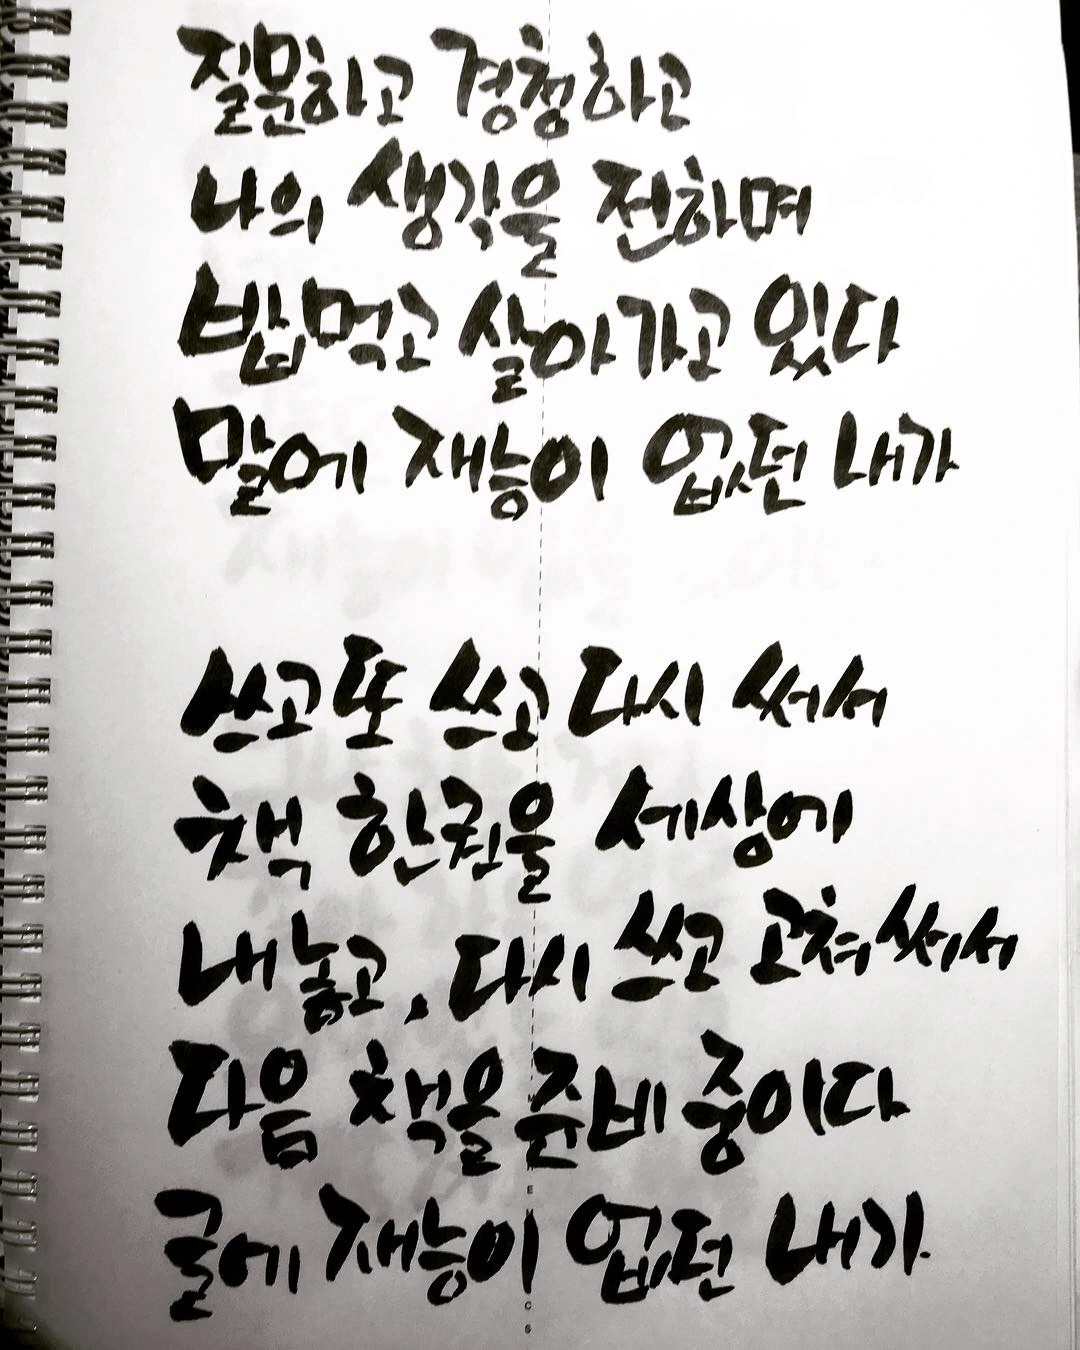 질문하고 경청하고
나의 생각을 전하며
밥먹고 살아가고 있다
말에 재능이 없던 내가
쓰고 또 쓰고 다시 써서
책 한권을 세상에
내놓고, 다시 쓰고 고쳐써서
다음 책을 준비 중이다
글에 재능이 없던 내가.